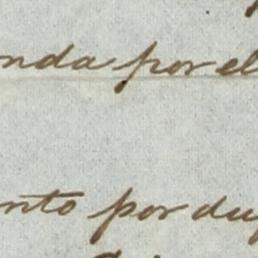 nda por el
nto por dup